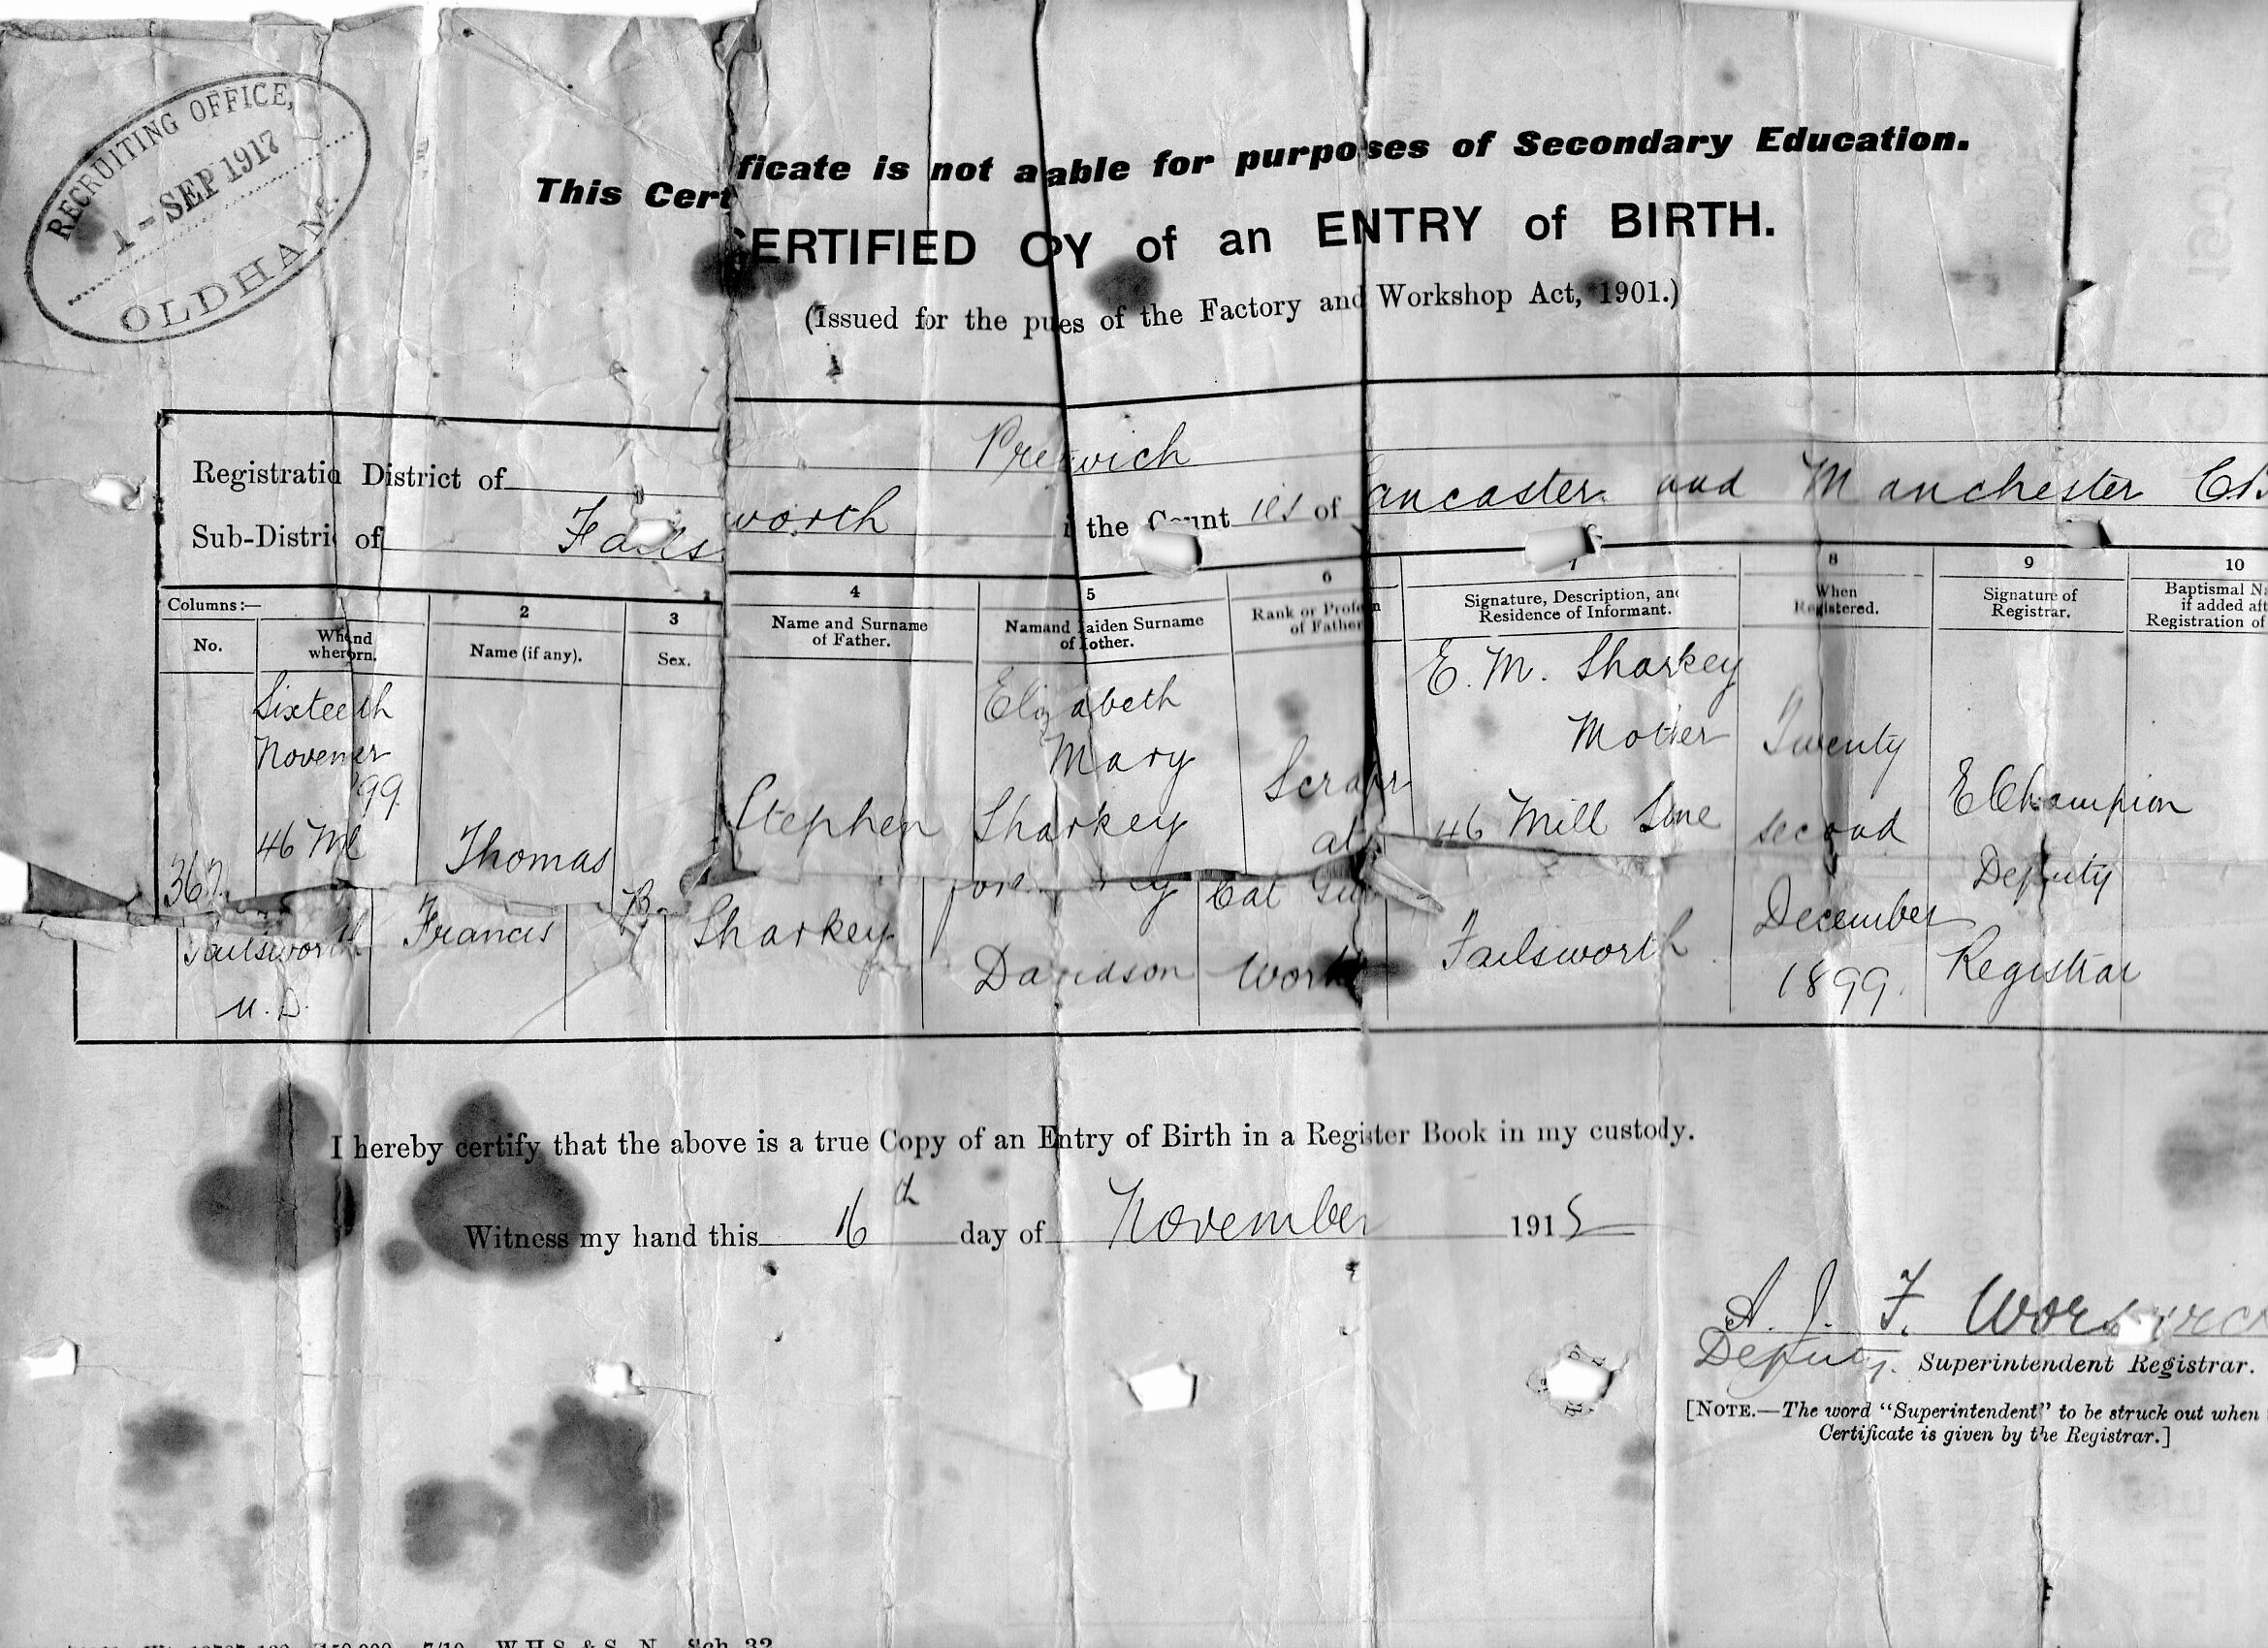 RECRUITING OFFICE,
1 - SEP 1917
OLDHAM.
This Certificate is not aable for purposes of Secondary Education.
CERTIFIED OPY of an ENTRY of BIRTH.
(Issued for the pues of the Factory and Workshop Act, 1901.)
Registratio District of Prewich
Sub-Distri of Failsworth the Counties of Lancaster and Manchester C.B.
Columns:— 2 3 4 5 6 7 8 9 10
No. Whand wherorn. Name (if any). Sex. Name and Surname of Father. Namand Maiden Surname of Mother. Rank or Profen of Father Signature, Description, and Residence of Informant. When Registered. Signature of Registrar. Baptismal Na if added aft Registration of
367
Sixteeth
Novemer
'99
46 Ml
Failsworth
U.D.
Thomas
Francis
B
Stephen
Sharkey
Elizabeth
Mary
Sharkey
Davidson
Scraper
at
Gas
Work
E. M. Sharkey
Mother
46 Mill Lane
Failsworth
Twenty
second
December
1899.
E Champion
Deputy
Registrar
I hereby certify that the above is a true Copy of an Entry of Birth in a Register Book in my custody.
Witness my hand this 16th day of November 1915
A. J. F. Worswick
Deputy. Superintendent Registrar.
[NOTE.—The word "Superintendent" to be struck out when
Certificate is given by the Registrar.]
W.H.S. & S. N. Sch. 32